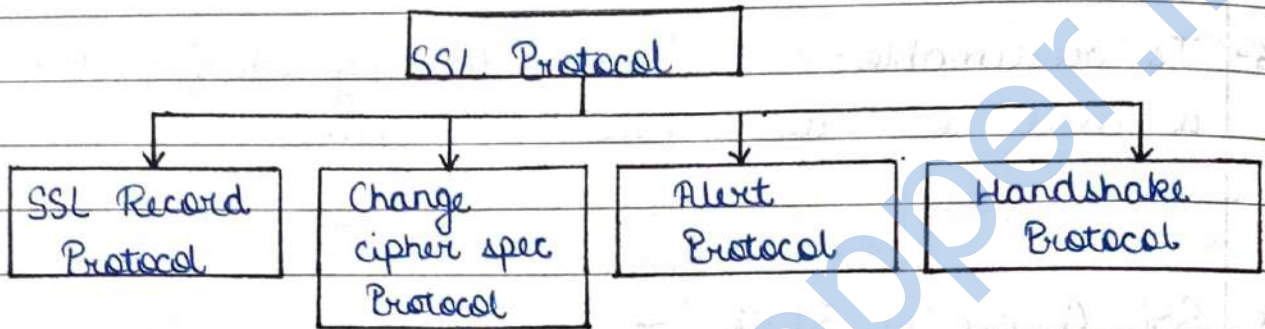 SSL Protocol
SSL Record
Protocol
Change
cipher spec
Protocol
Alert
Protocol
Handshake
Protocol